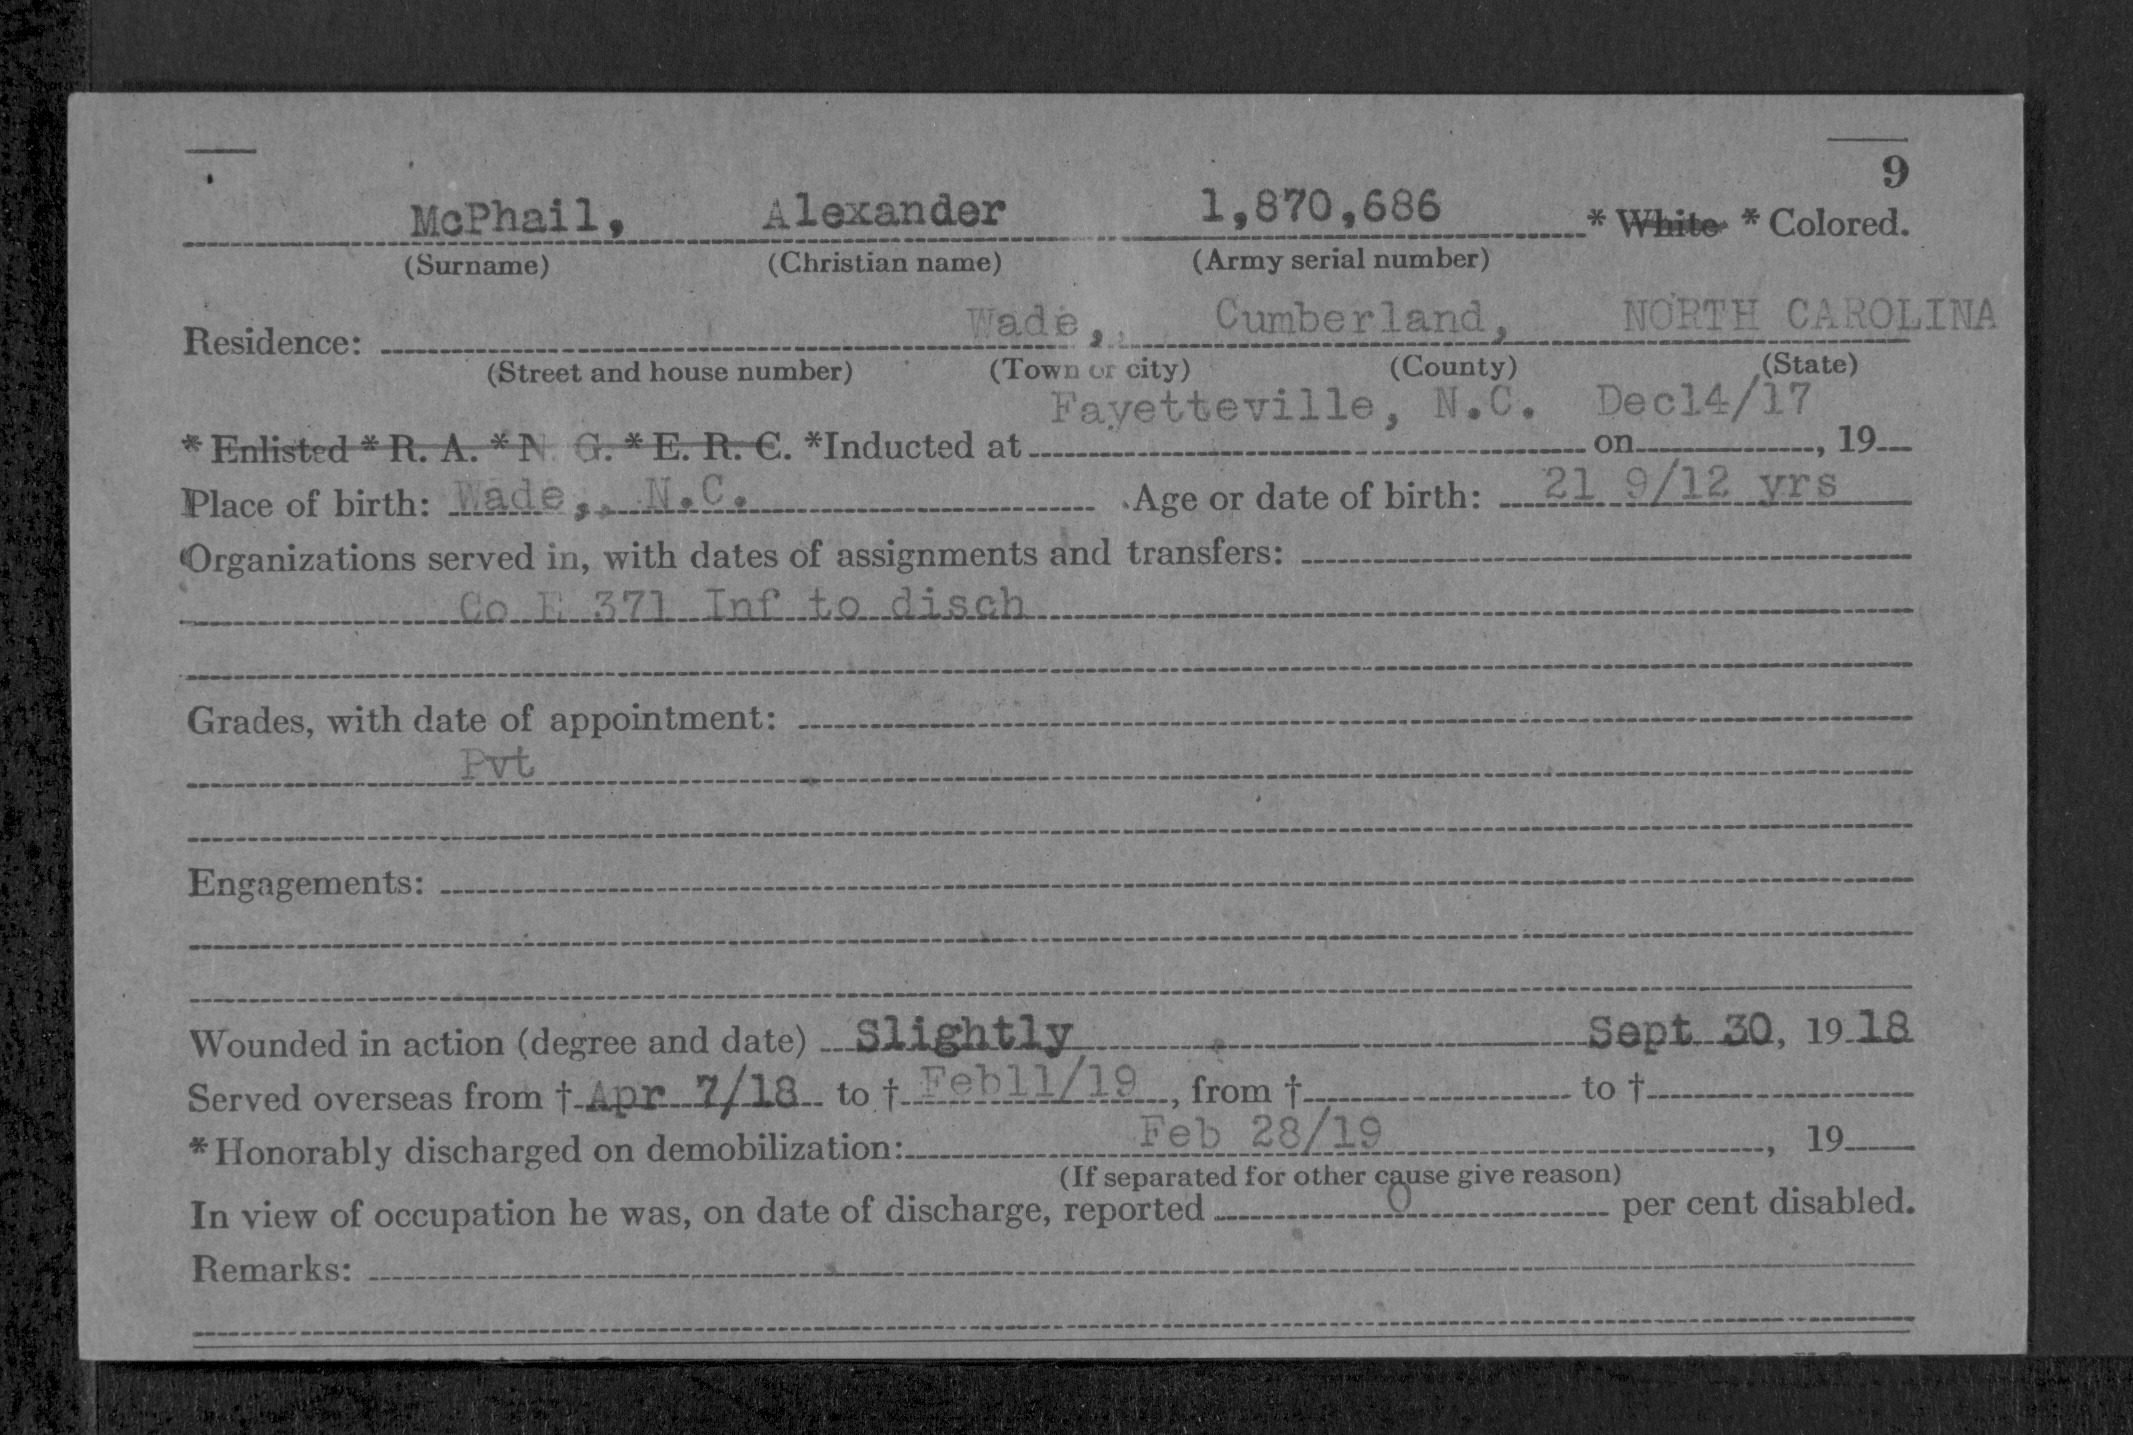 9
McPhail, Alexander 1,870,686 * White * Colored.
(Surname) (Christian name) (Army serial number)
Residence: Wade, Cumberland, NORTH CAROLINA
(Street and house number) (Town or city) (County) (State)
Fayetteville, N.C. Dec14/17
* Enlisted * R. A. * N. G. * E. R. C. *Inducted at on , 19
Place of birth: Wade, N.C. Age or date of birth: 21 9/12 yrs
Organizations served in, with dates of assignments and transfers:
Co E 371 Inf to disch
Grades, with date of appointment:
Pvt
Engagements:
Wounded in action (degree and date) Slightly Sept 30, 19 18
Served overseas from † Apr 7/18 to † Feb11/19, from † to †
*Honorably discharged on demobilization: Feb 28/19 , 19
(If separated for other cause give reason)
In view of occupation he was, on date of discharge, reported 0 per cent disabled.
Remarks: